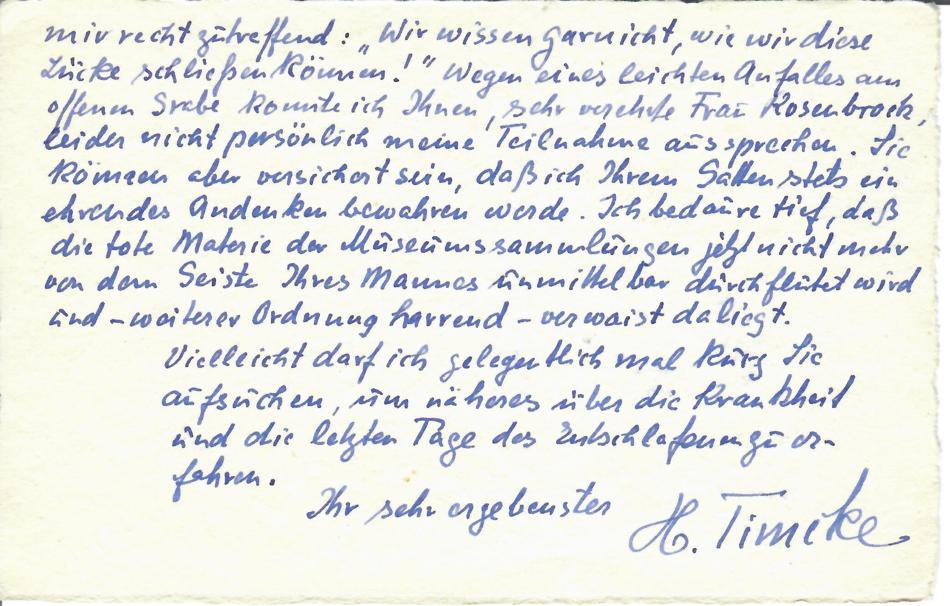 mir recht zutreffend: „Wir wissen garnicht, wie wir diese
Lücke schließen können!" Wegen eines leichten Anfalles am
offenen Grabe konnte ich Ihnen, sehr verehrte Frau Rosenbrock,
leider nicht persönlich meine Teilnahme aussprechen. Sie
können aber versichert sein, daß ich Ihrem Gatten stets ein
ehrendes Andenken bewahren werde. Ich bedaure tief, daß
die tote Materie der Museumssammlungen jetzt nicht mehr
von dem Geiste Ihres Mannes unmittelbar durchflutet wird
und – weiterer Ordnung harrend – verwaist daliegt.
Vielleicht darf ich gelegentlich mal kurz Sie
aufsuchen, um näheres über die Krankheit
und die letzten Tage des Entschlafenen zu er-
fahren.
Ihr sehr ergebenster H. Timcke